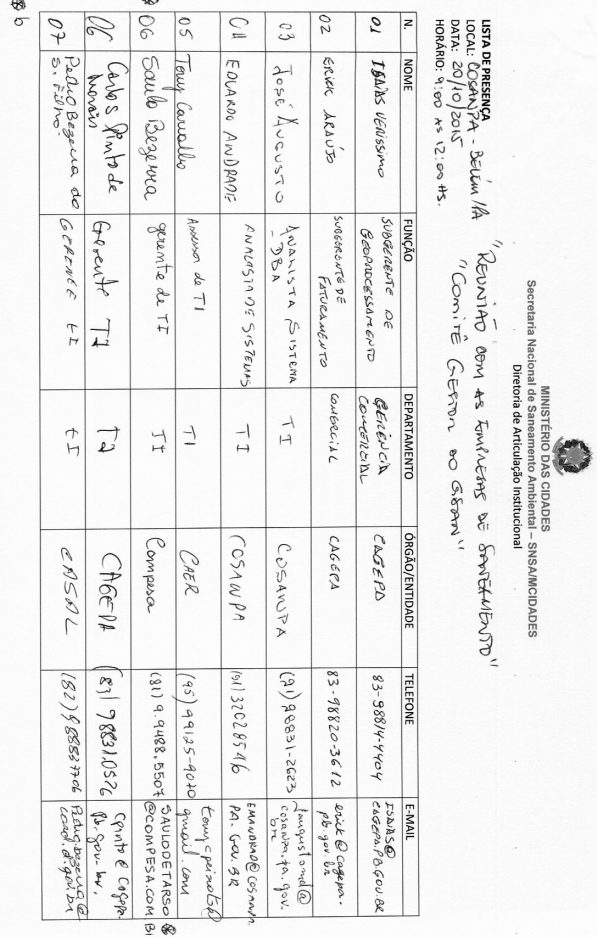 MINISTÉRIO DAS CIDADES
Secretaria Nacional de Saneamento Ambiental – SNSA/MCIDADES
Diretoria de Articulação Institucional
LISTA DE PRESENÇA
LOCAL: COSANPA - BELÉM/PA
DATA: 20/10/2015
HORÁRIO: 9:00 AS 12:00 HS.
"REUNIÃO COM AS EMPRESAS DE SANEAMENTO"
"COMITÊ GESTOR DO GSAN"
N. NOME FUNÇÃO DEPARTAMENTO ÓRGÃO/ENTIDADE TELEFONE E-MAIL
01 ISAÍAS VERÍSSIMO SUBGERENTE DE GEOPROCESSAMENTO GERÊNCIA COMERCIAL CAGEPA 83-98814-4404 ISAIAS@CAGEPA.PB.GOV.BR
02 ERICK ARAÚJO SUBGERENTE DE FATURAMENTO COMERCIAL CAGEPA 83-98820-3612 erick@cagepa.pb.gov.br
03 JOSÉ AUGUSTO ANALISTA SISTEMA - DBA TI COSANPA (91) 98831-2623 cosanpa.pa.gov.br
04 EDUARDO ANDRADE ANALISTA DE SISTEMAS TI COSANPA (91) 32028546 PA.GOV.BR
05 Tony Carvalho Assessor de TI TI CAER (95) 99125-9070 gmail.com
06 Saulo Bezerra gerente de TI TI Compesa (81) 9.9488.5507 SAULODETARSO@COMPESA.COM.BR
06 Carlos Pinto de Morais Gerente TI TI CAGEPA (83) 988310576 cpinto@cagepa.pb.gov.br
07 Pedro Bezerra do S. Filho GERENTE TI TI CASAL (82) 988837706